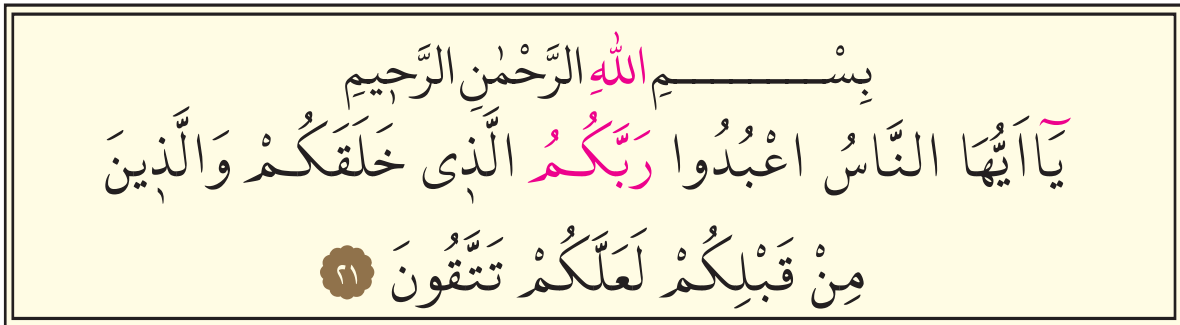 بِسْــــــــــــمِ اللّٰهِ الرَّحْمٰنِ الرَّحٖيمِ
يَٓا اَيُّهَا النَّاسُ اعْبُدُوا رَبَّكُمُ الَّذٖى خَلَقَكُمْ وَالَّذٖينَ
مِنْ قَبْلِكُمْ لَعَلَّكُمْ تَتَّقُونَ ٢١